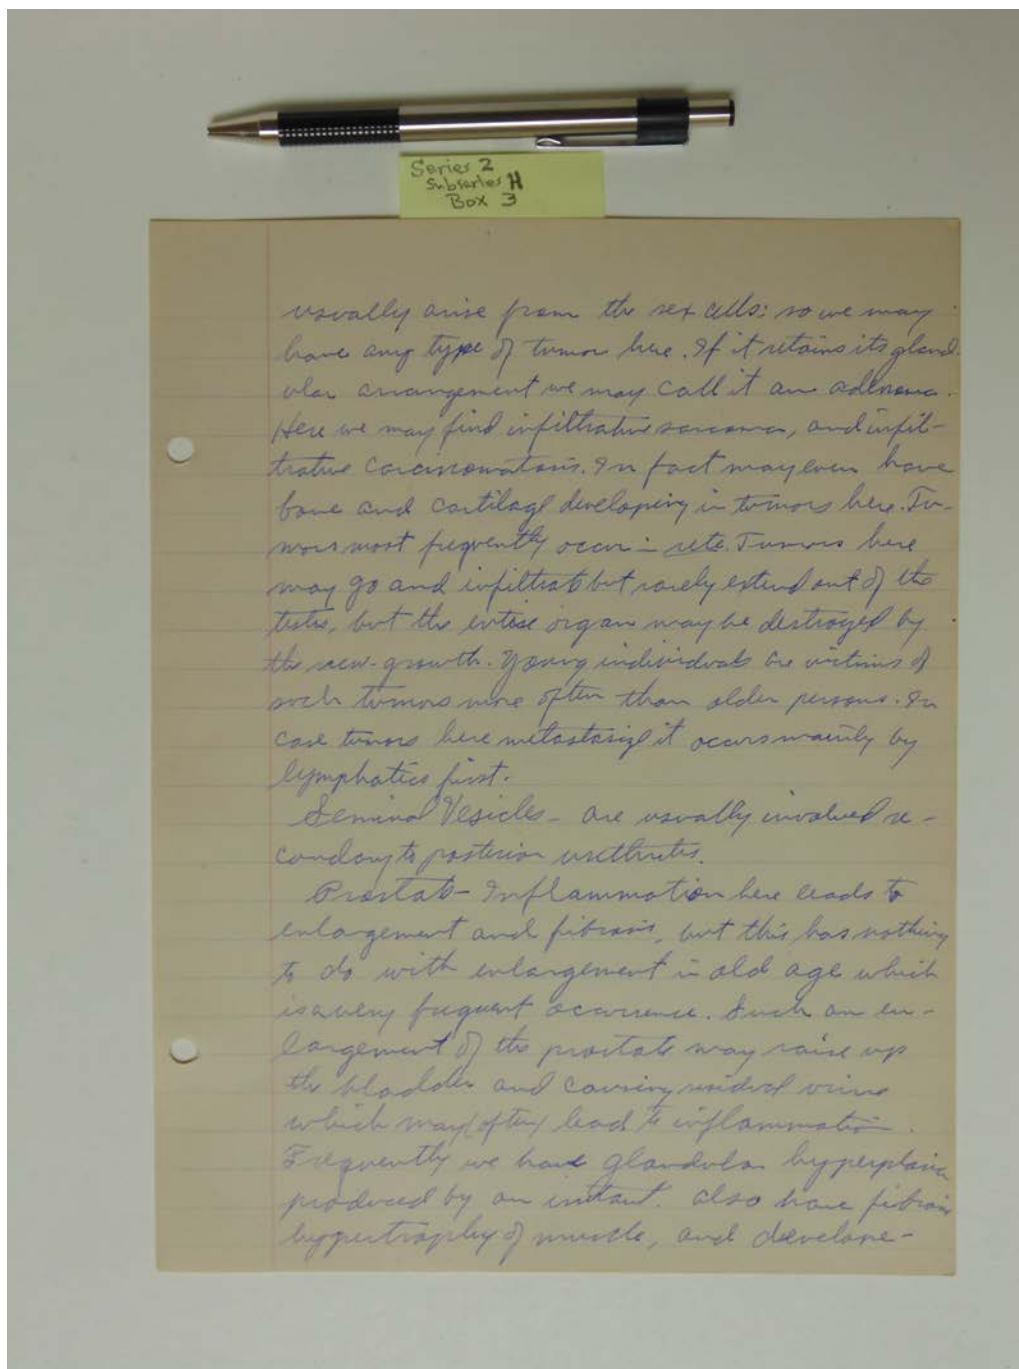 Series 2
Subseries H
Box 3
usually arise from the sex cells: so we may
have any type of tumor here. If it retains its gland-
ular arrangement we may call it an adenoma.
Here we may find infiltrative sarcoma, and infil-
trative carcinomatosis. In fact may even have
bone and cartilage developing in tumors here. Tu-
mors most frequently occur in rete. Tumors here
may go and infiltrate but rarely extend out of the
testes, but the entire organ may be destroyed by
the new-growth. Young individuals are victims of
such tumors more often than older persons. In
case tumors here metastasize it occurs mainly by
lymphatics first.
Seminal Vesicles - are usually involved se-
condary to posterior urethritis.
Prostate - Inflammation here leads to
enlargement and fibrosis, but this has nothing
to do with enlargement in old age which
is a very frequent ocurrence. Such an en-
largement of the prostate may raise up
the bladder and causing residual urine
which may (often) lead to inflammation.
Frequently we have glandular hyperplasia
produced by an irritant. also have fibrosis
hypertrophy of muscle, and develope-